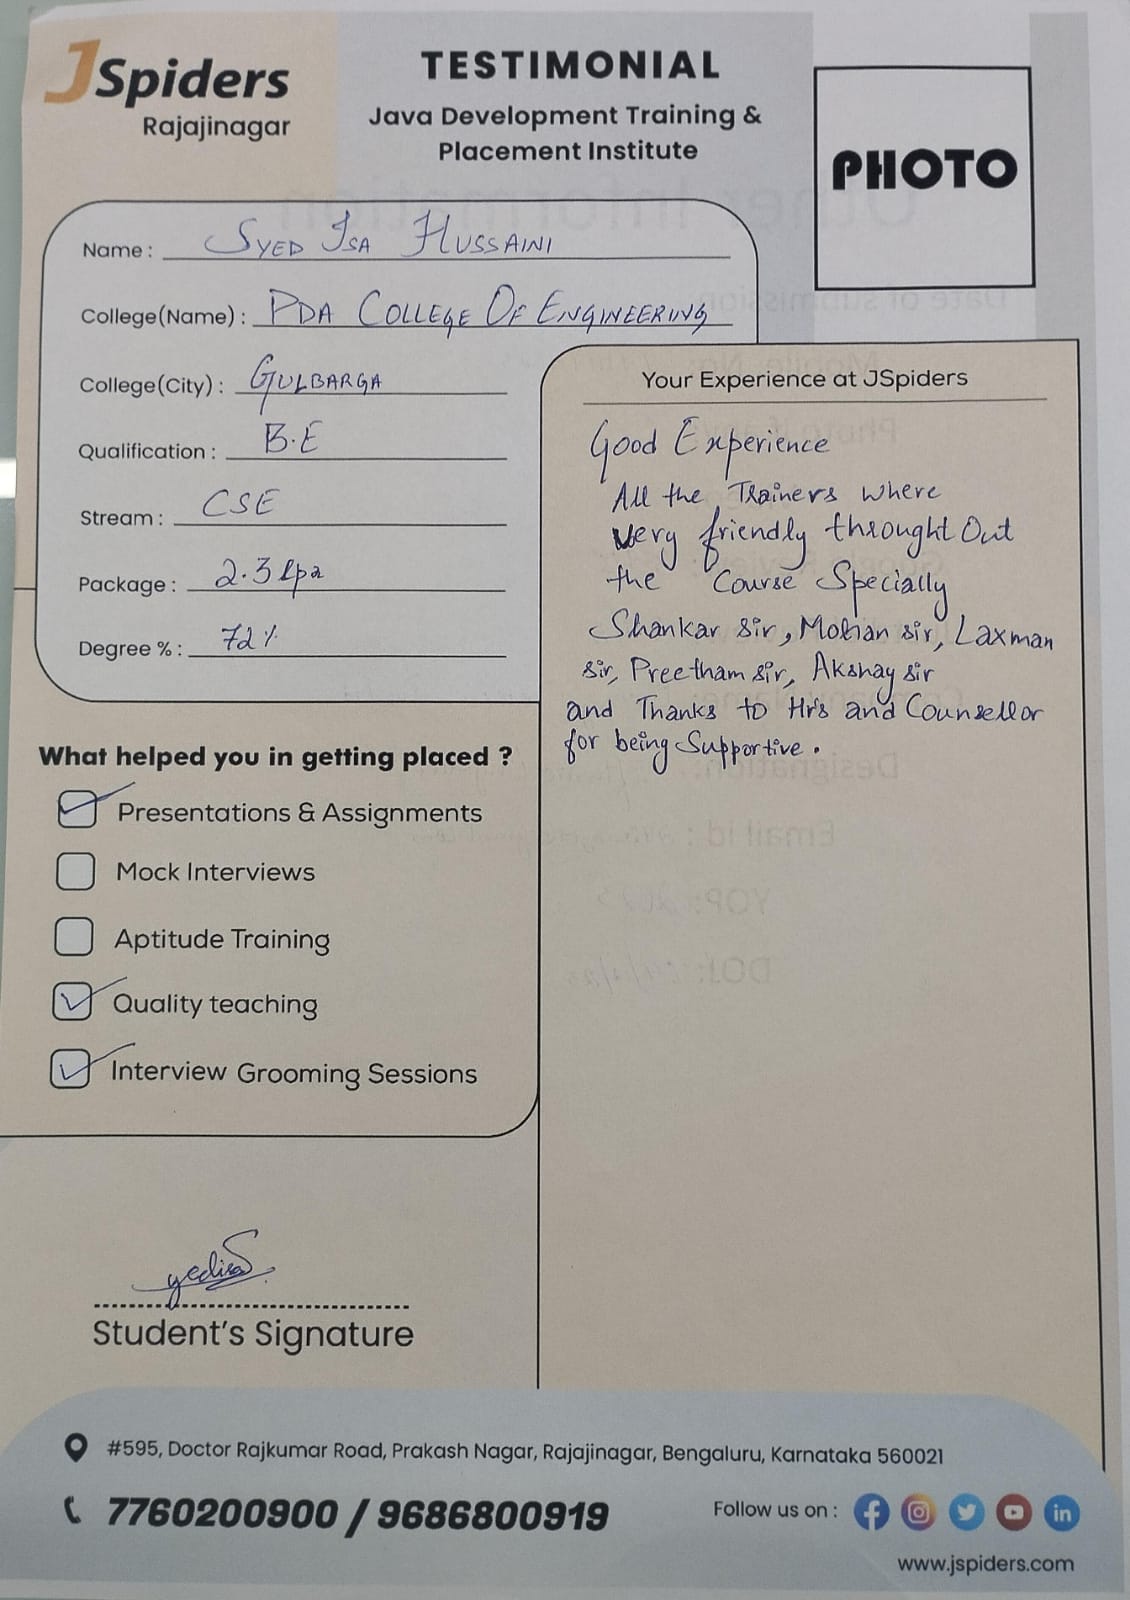 JSpiders
Rajajinagar
TESTIMONIAL
Java Development Training &
Placement Institute
PHOTO
Name : SYED ISA HUSSAINI
College(Name) : PDA COLLEGE OF ENGINEERING
College(City) : GULBARGA
Qualification : B.E
Stream : CSE
Package : 2.3 lpa
Degree % : 72%
What helped you in getting placed ?
Presentations & Assignments
Mock Interviews
Aptitude Training
Quality teaching
Interview Grooming Sessions
Your Experience at JSpiders
Good Experience
All the Trainers where
very friendly throught Out
the Course Specially
Shankar sir, Mohan sir, Laxman
sir, Preetham sir, Akshay sir
and Thanks to Hr's and Counsellor
for being Supportive.
Student's Signature
#595, Doctor Rajkumar Road, Prakash Nagar, Rajajinagar, Bengaluru, Karnataka 560021
7760200900 / 9686800919
Follow us on :
www.jspiders.com